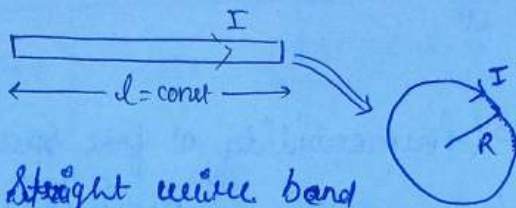 I
l = const
I
R
Straight wire band